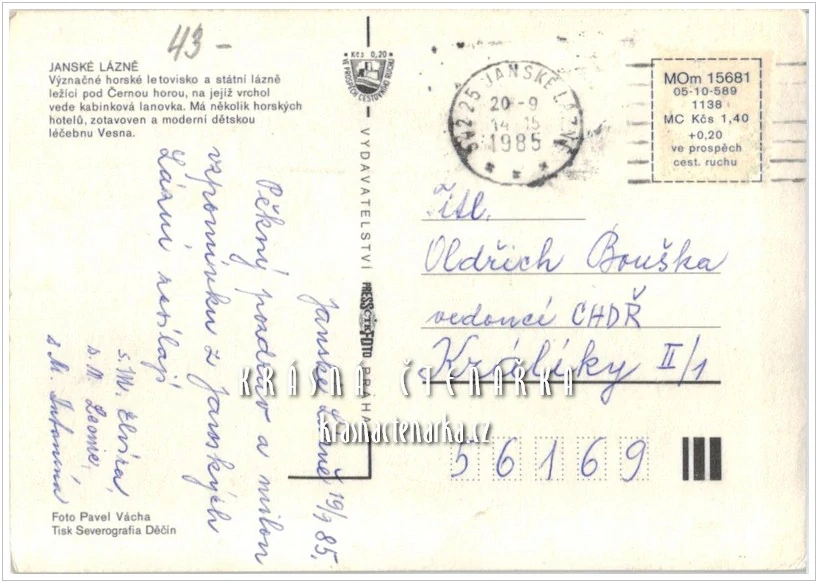 43-
JANSKÉ LÁZNĚ
Význačné horské letovisko a státní lázně
ležící pod Černou horou, na jejíž vrchol
vede kabinková lanovka. Má několik horských
hotelů, zotavoven a moderní dětskou
léčebnu Vesna.
Janské Lázně 19/9 85.
Pěkný pozdrav a milou
vzpomínku z Janských
Lázní zasílají
s. M. Elvíra,
s. M. Leonie,
s M. Antonína
Foto Pavel Vácha
Tisk Severografia Děčín
Kčs 0,20
VE PROSPĚCH CESTOVNÍHO RUCHU
VYDAVATELSTVÍ PRESSFOTO PRAHA
ČTK
542 25 JANSKÉ LÁZNĚ
20-9
14-15
1985
MOm 15681
05-10-589
1138
MC Kčs 1,40
+0,20
ve prospěch
cest. ruchu
Titl.
Oldřich Bouška
vedoucí CHDŘ
Králíky II/1
56169
KRÁSNÁ ČTENÁŘKA
krasnactenarka.cz